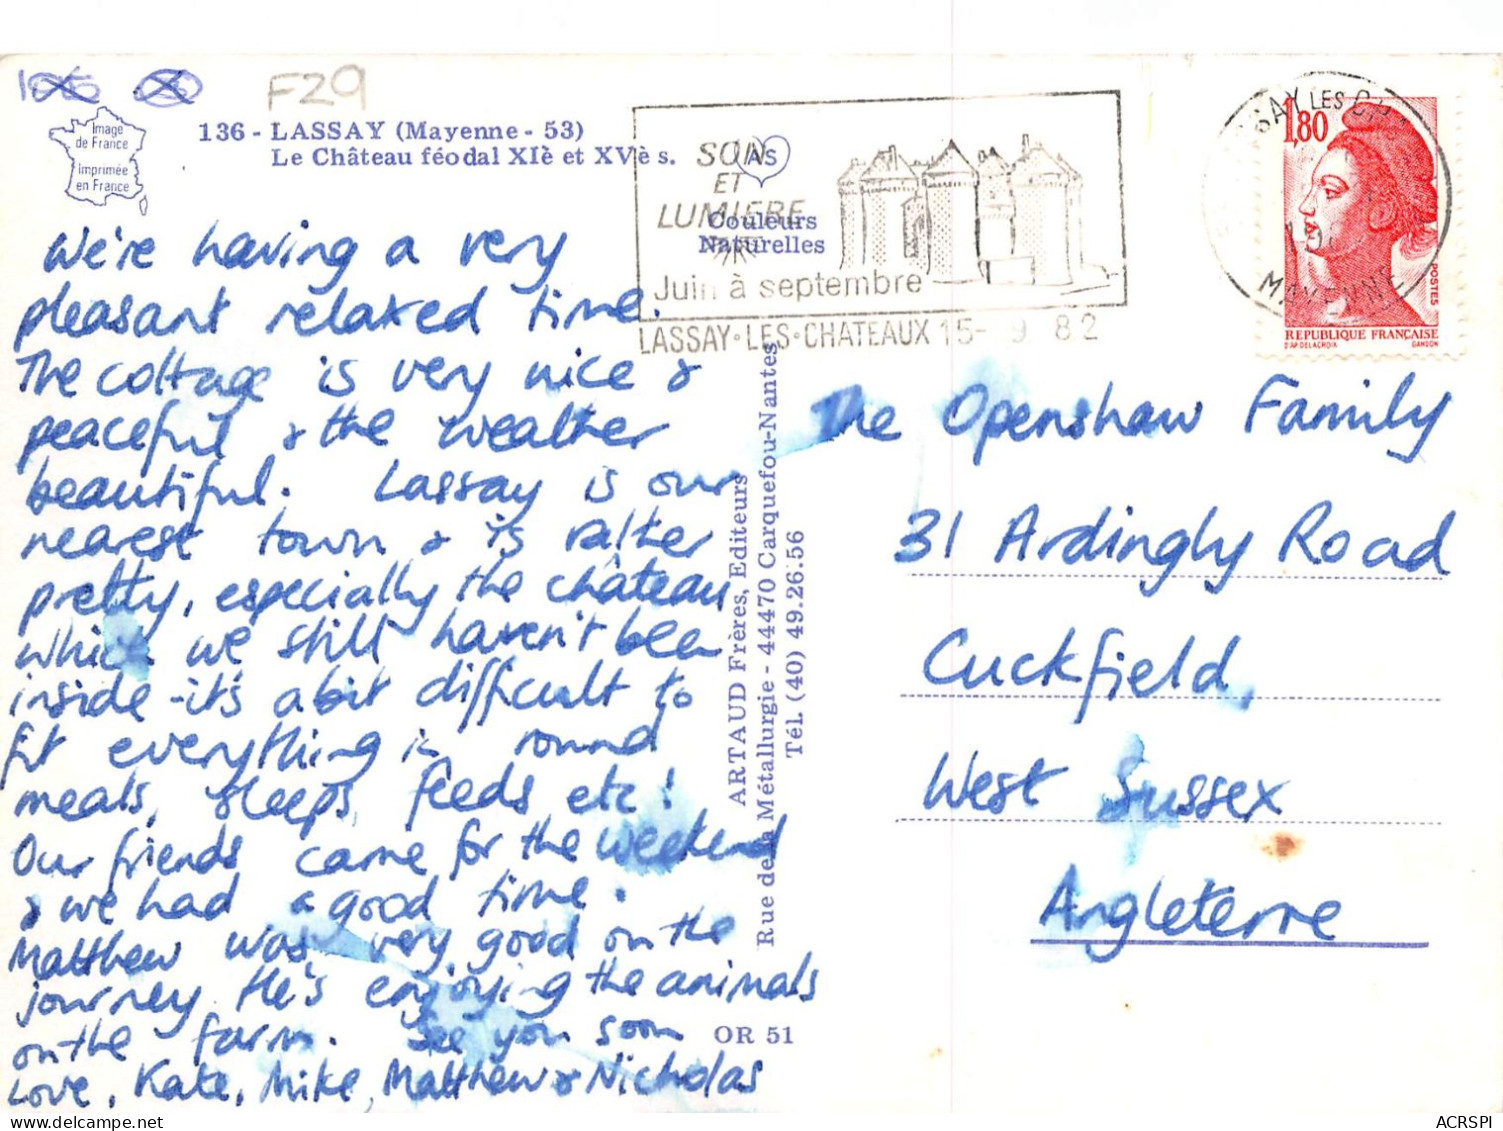 F29
Image
de France
Imprimée
en France
136 - LASSAY (Mayenne - 53)
Le Château féodal XIè et XVè s.
SON
ET
LUMIERE
AS
Couleurs
Naturelles
Juin à septembre
LASSAY·LES·CHATEAUX 15- 9 82
MAYENNE
1,80
POSTES
REPUBLIQUE FRANÇAISE
D'AP. DELACROIX GANDON
We're having a very
pleasant relaxed time.
The cottage is very nice &
peaceful & the weather
beautiful. Lassay is our
nearest town & is rather
pretty, especially the château
which we still haven't been
inside - it's a bit difficult to
fit everything in round
meals, sleeps, feeds etc!
Our friends came for the weekend
& we had a good time.
Matthew was very good on the
journey. He's enjoying the animals
on the farm. See you soon
Love, Kate, Mike, Matthew & Nicholas
ARTAUD Frères, Editeurs
Rue de la Métallurgie - 44470 Carquefou-Nantes
Tél. (40) 49.26.56
OR 51
The Openshaw Family
31 Ardingly Road
Cuckfield,
West Sussex
Angleterre
ACRSPI